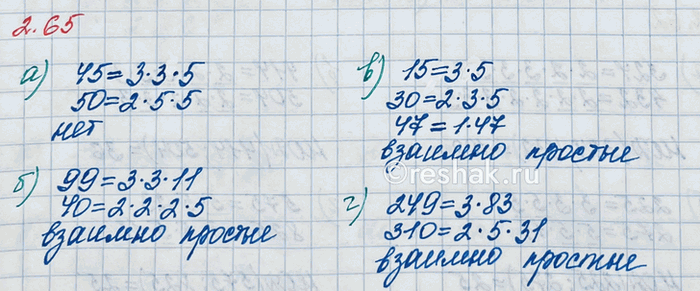 2.65
а) 45=3·3·5
50=2·5·5
нет
б) 99=3·3·11
40=2·2·2·5
взаимно простые
в) 15=3·5
30=2·3·5
47=1·47
взаимно простые
©reshak.ru
г) 249=3·83
310=2·5·31
взаимно простые